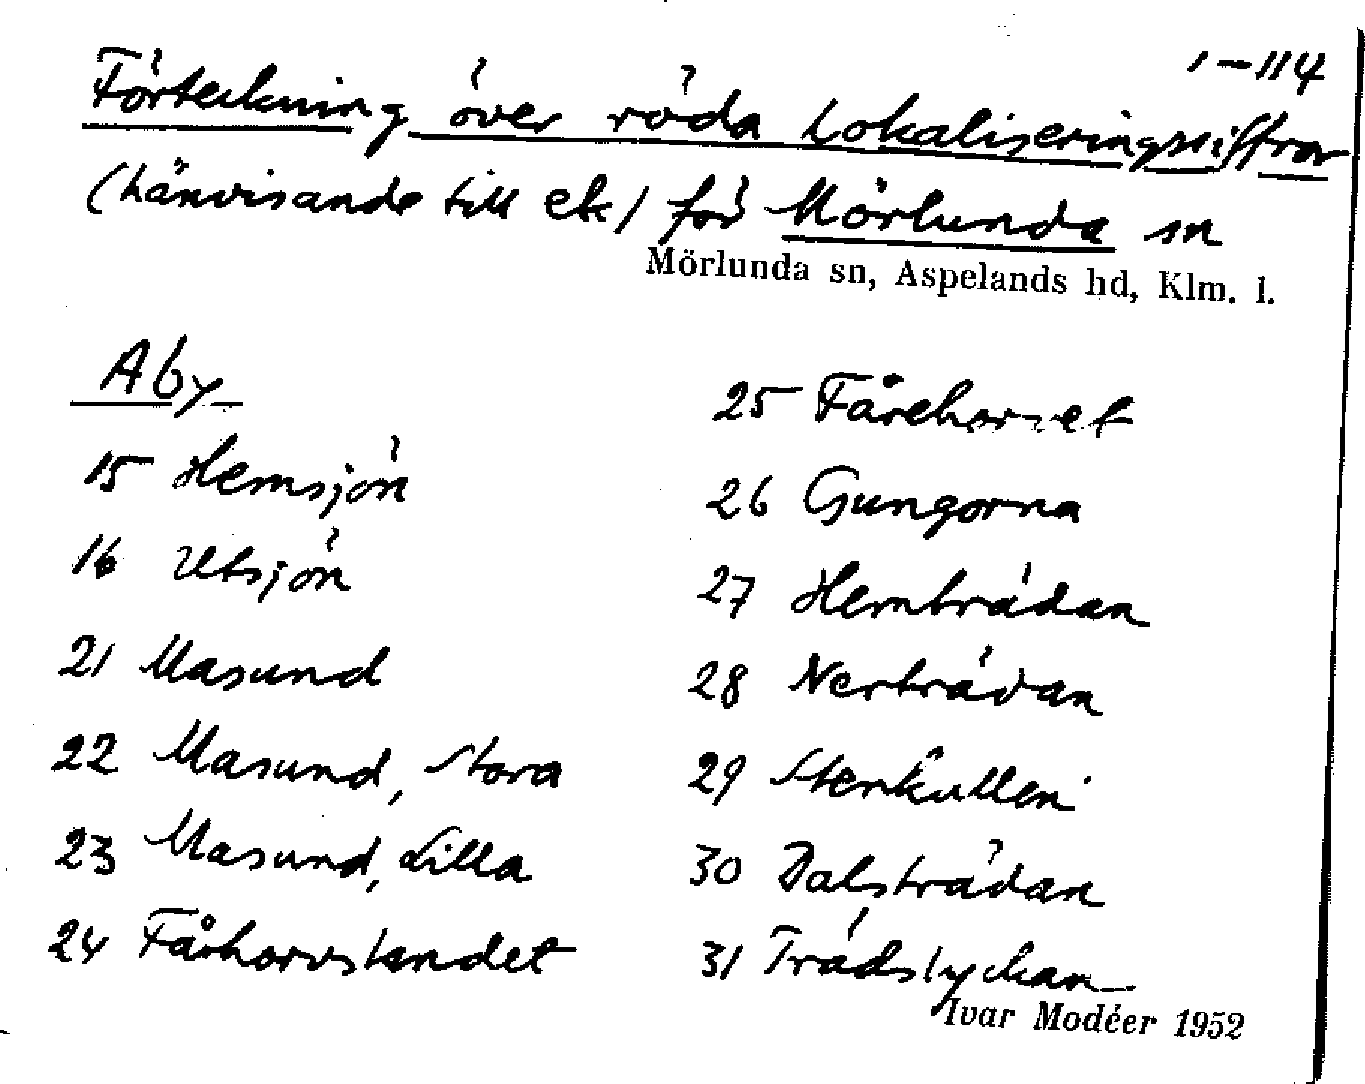 1-114
Förteckning över röda lokaliseringssiffror
(hänvisande till ek) för Mörlunda sn
Mörlunda sn, Aspelands hd, Klm. l.
Åby
15 Hemsjön
16 Utsjön
21 Masund
22 Masund, Stora
23 Masund, Lilla
24 Fårhorvslandet
25 Fårehorvet
26 Gungorna
27 Hemträdan
28 Nerträdan
29 Stenkullen
30 Dalsträdan
31 Trädslyckan
Ivar Modéer 1952